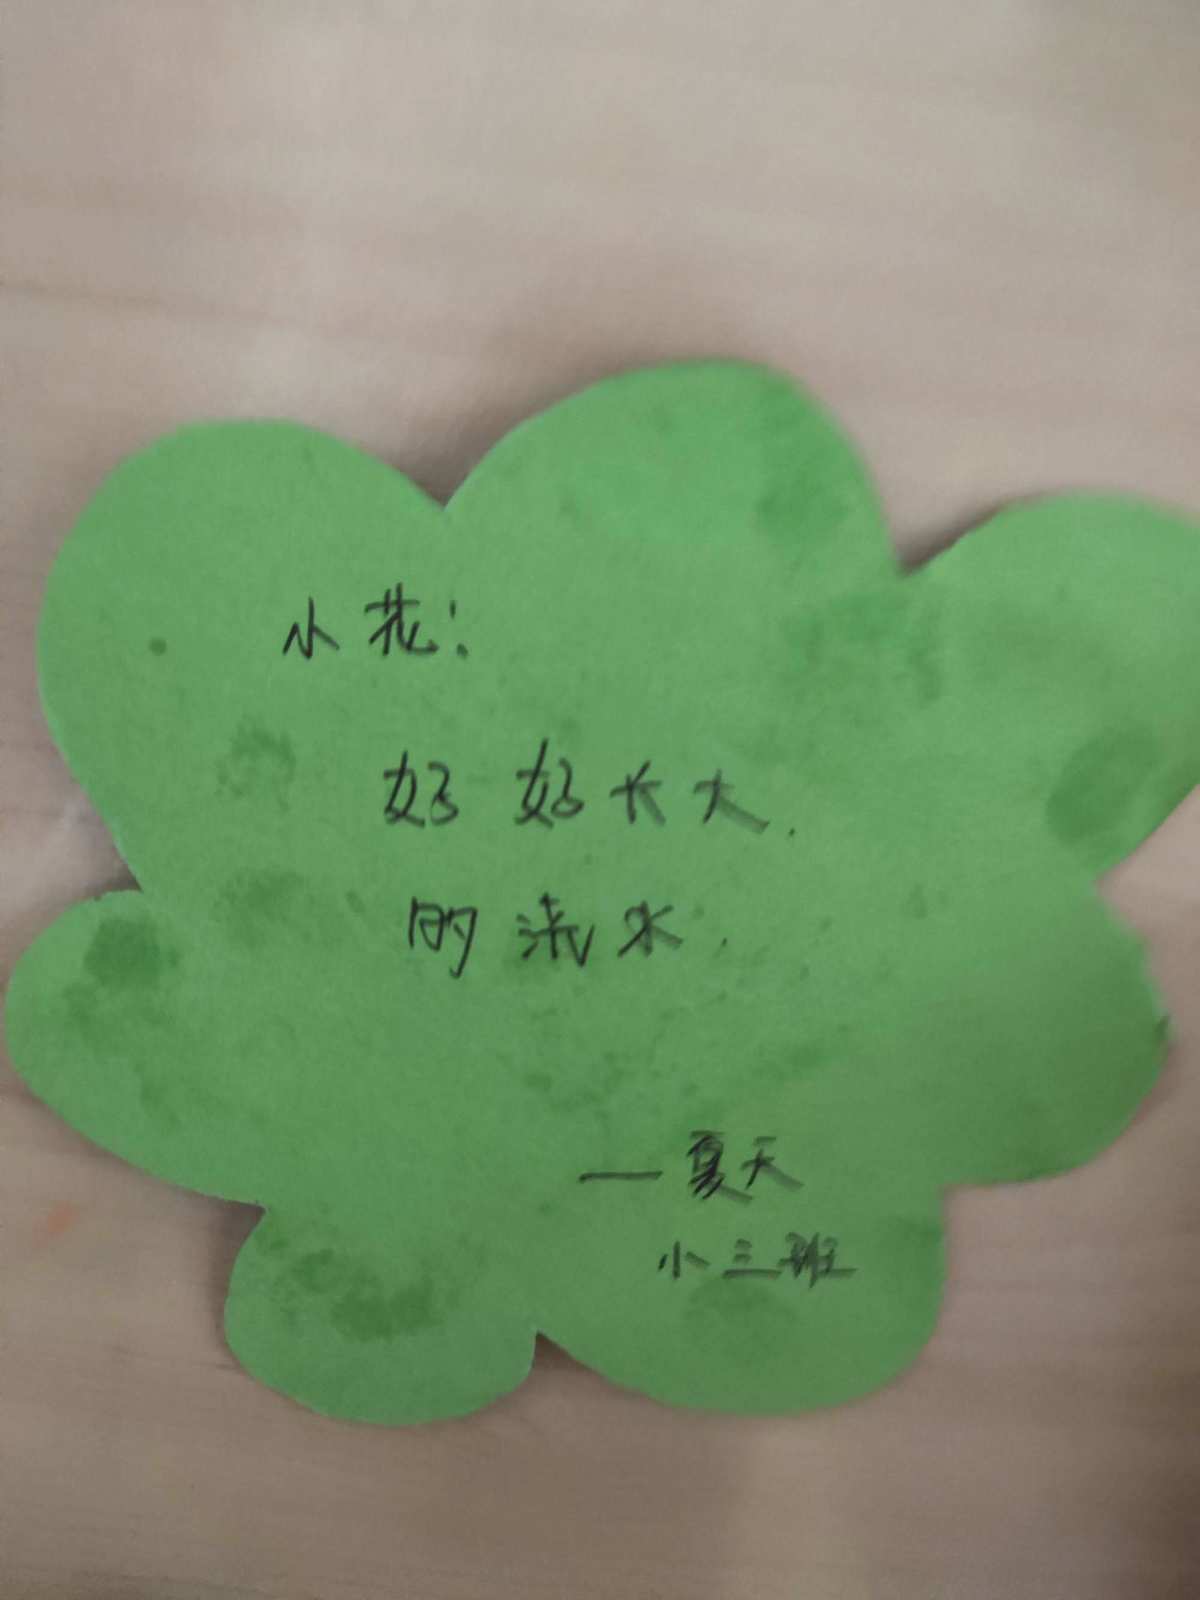 小花：
好好长大.
的流水.
——夏天
小三班